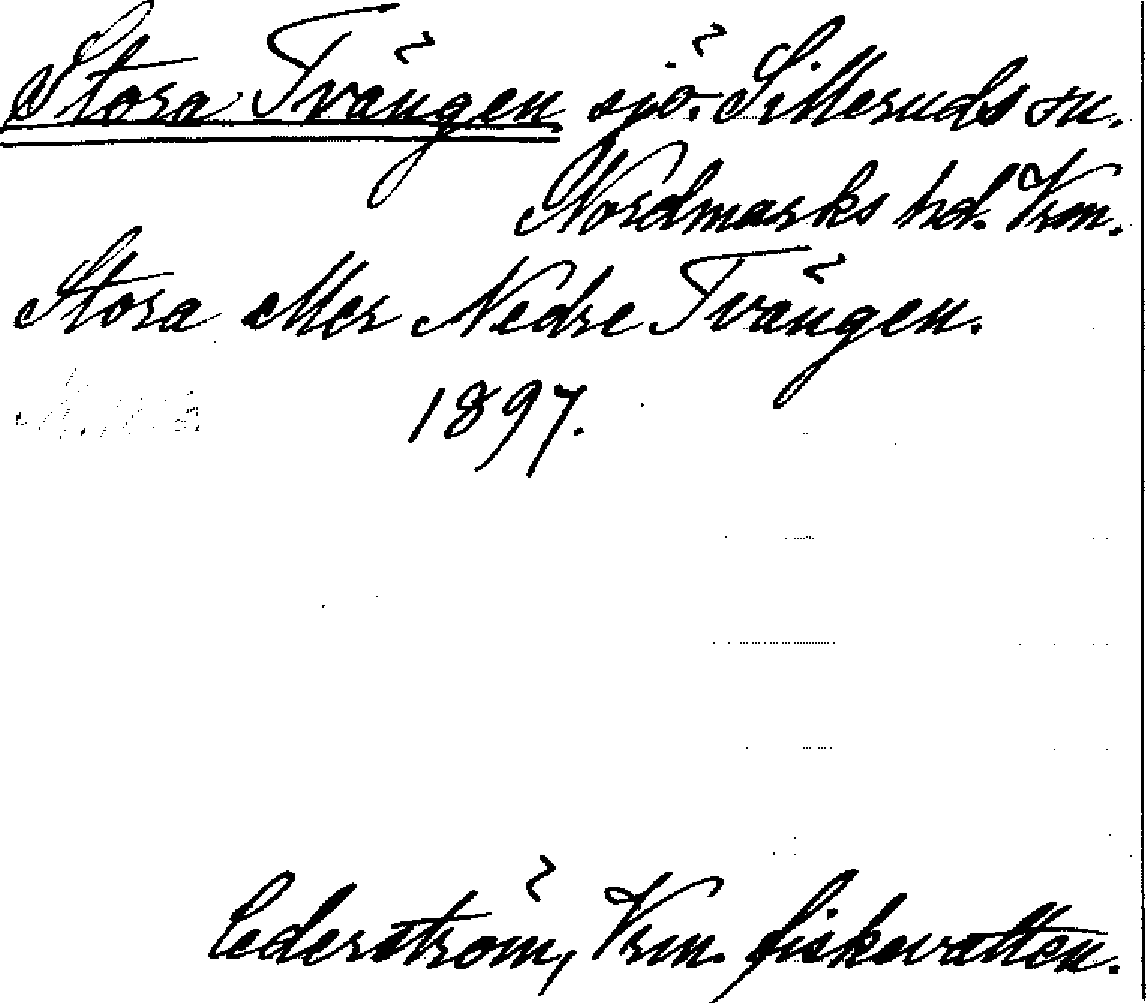 Stora Tvängen sjö. Silleruds sn.
Nordmarks hd. Vrm.
Stora eller Nedre Tvängen.
1897.
Cederström, Vrm. fiskevatten.